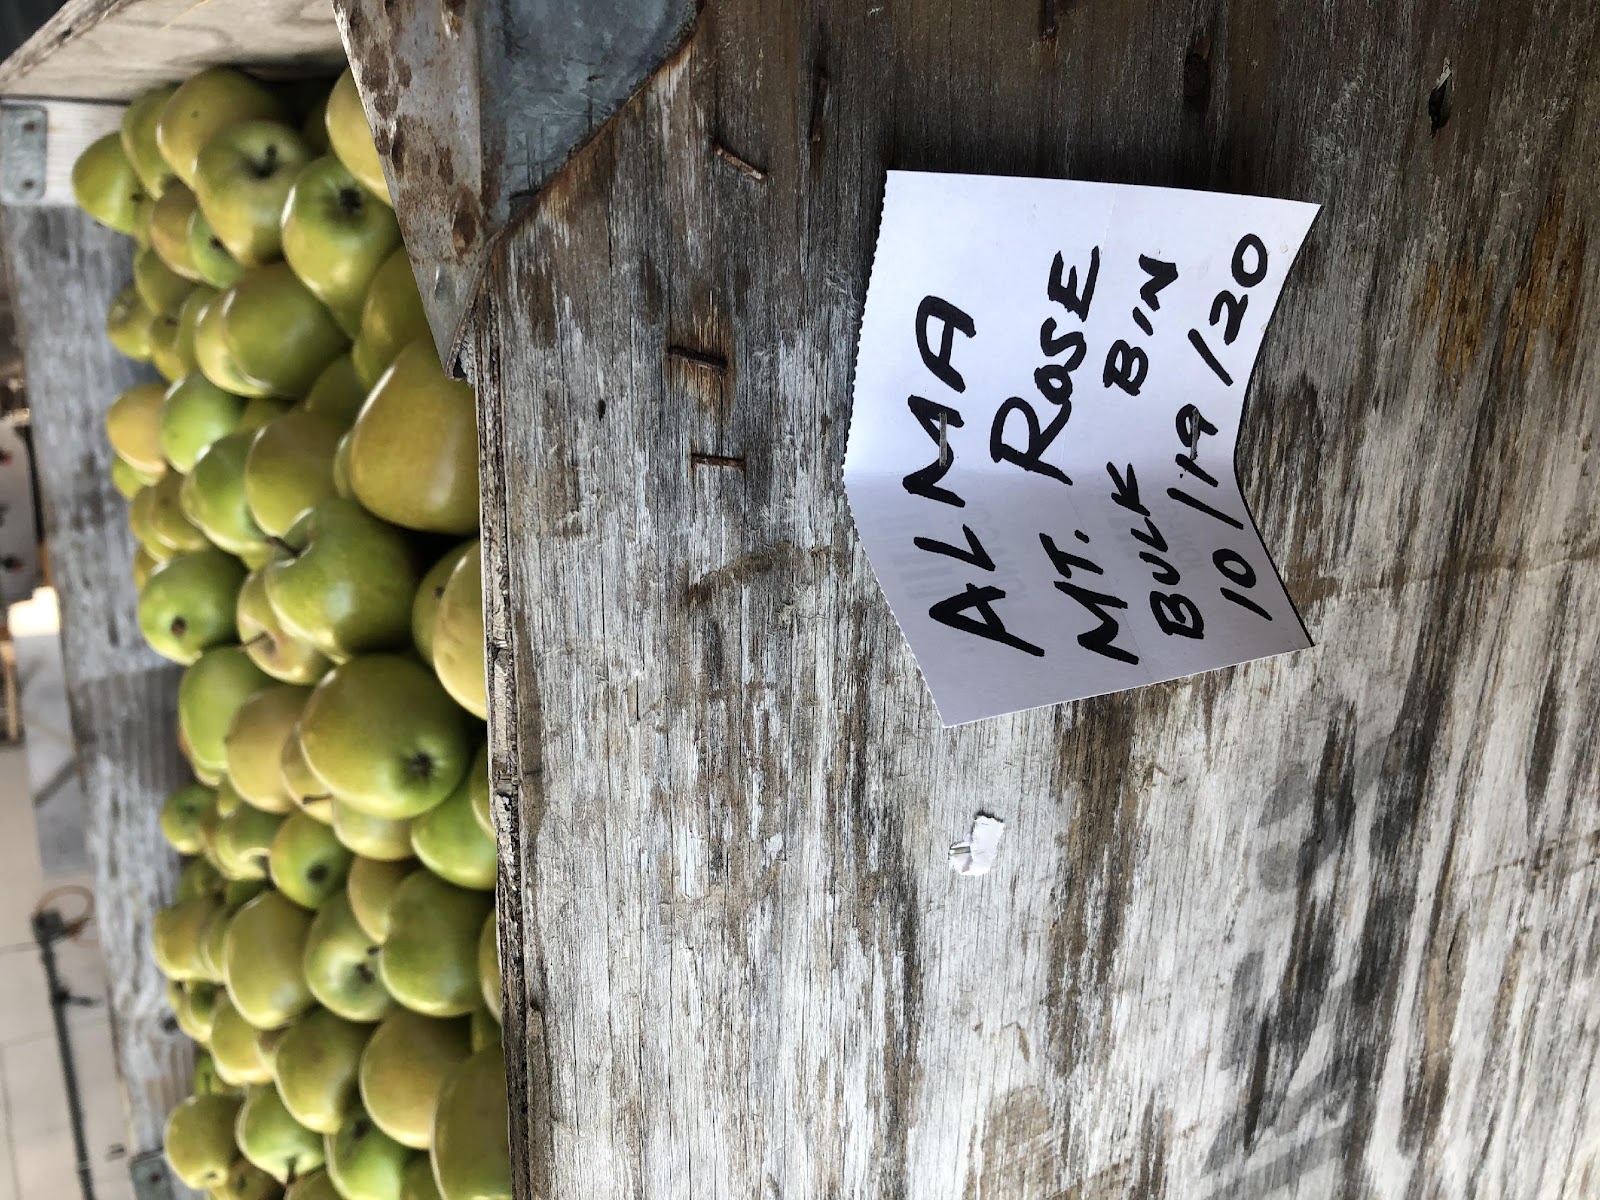 ALMA
MT. ROSE
BULK BIN
10/19/20